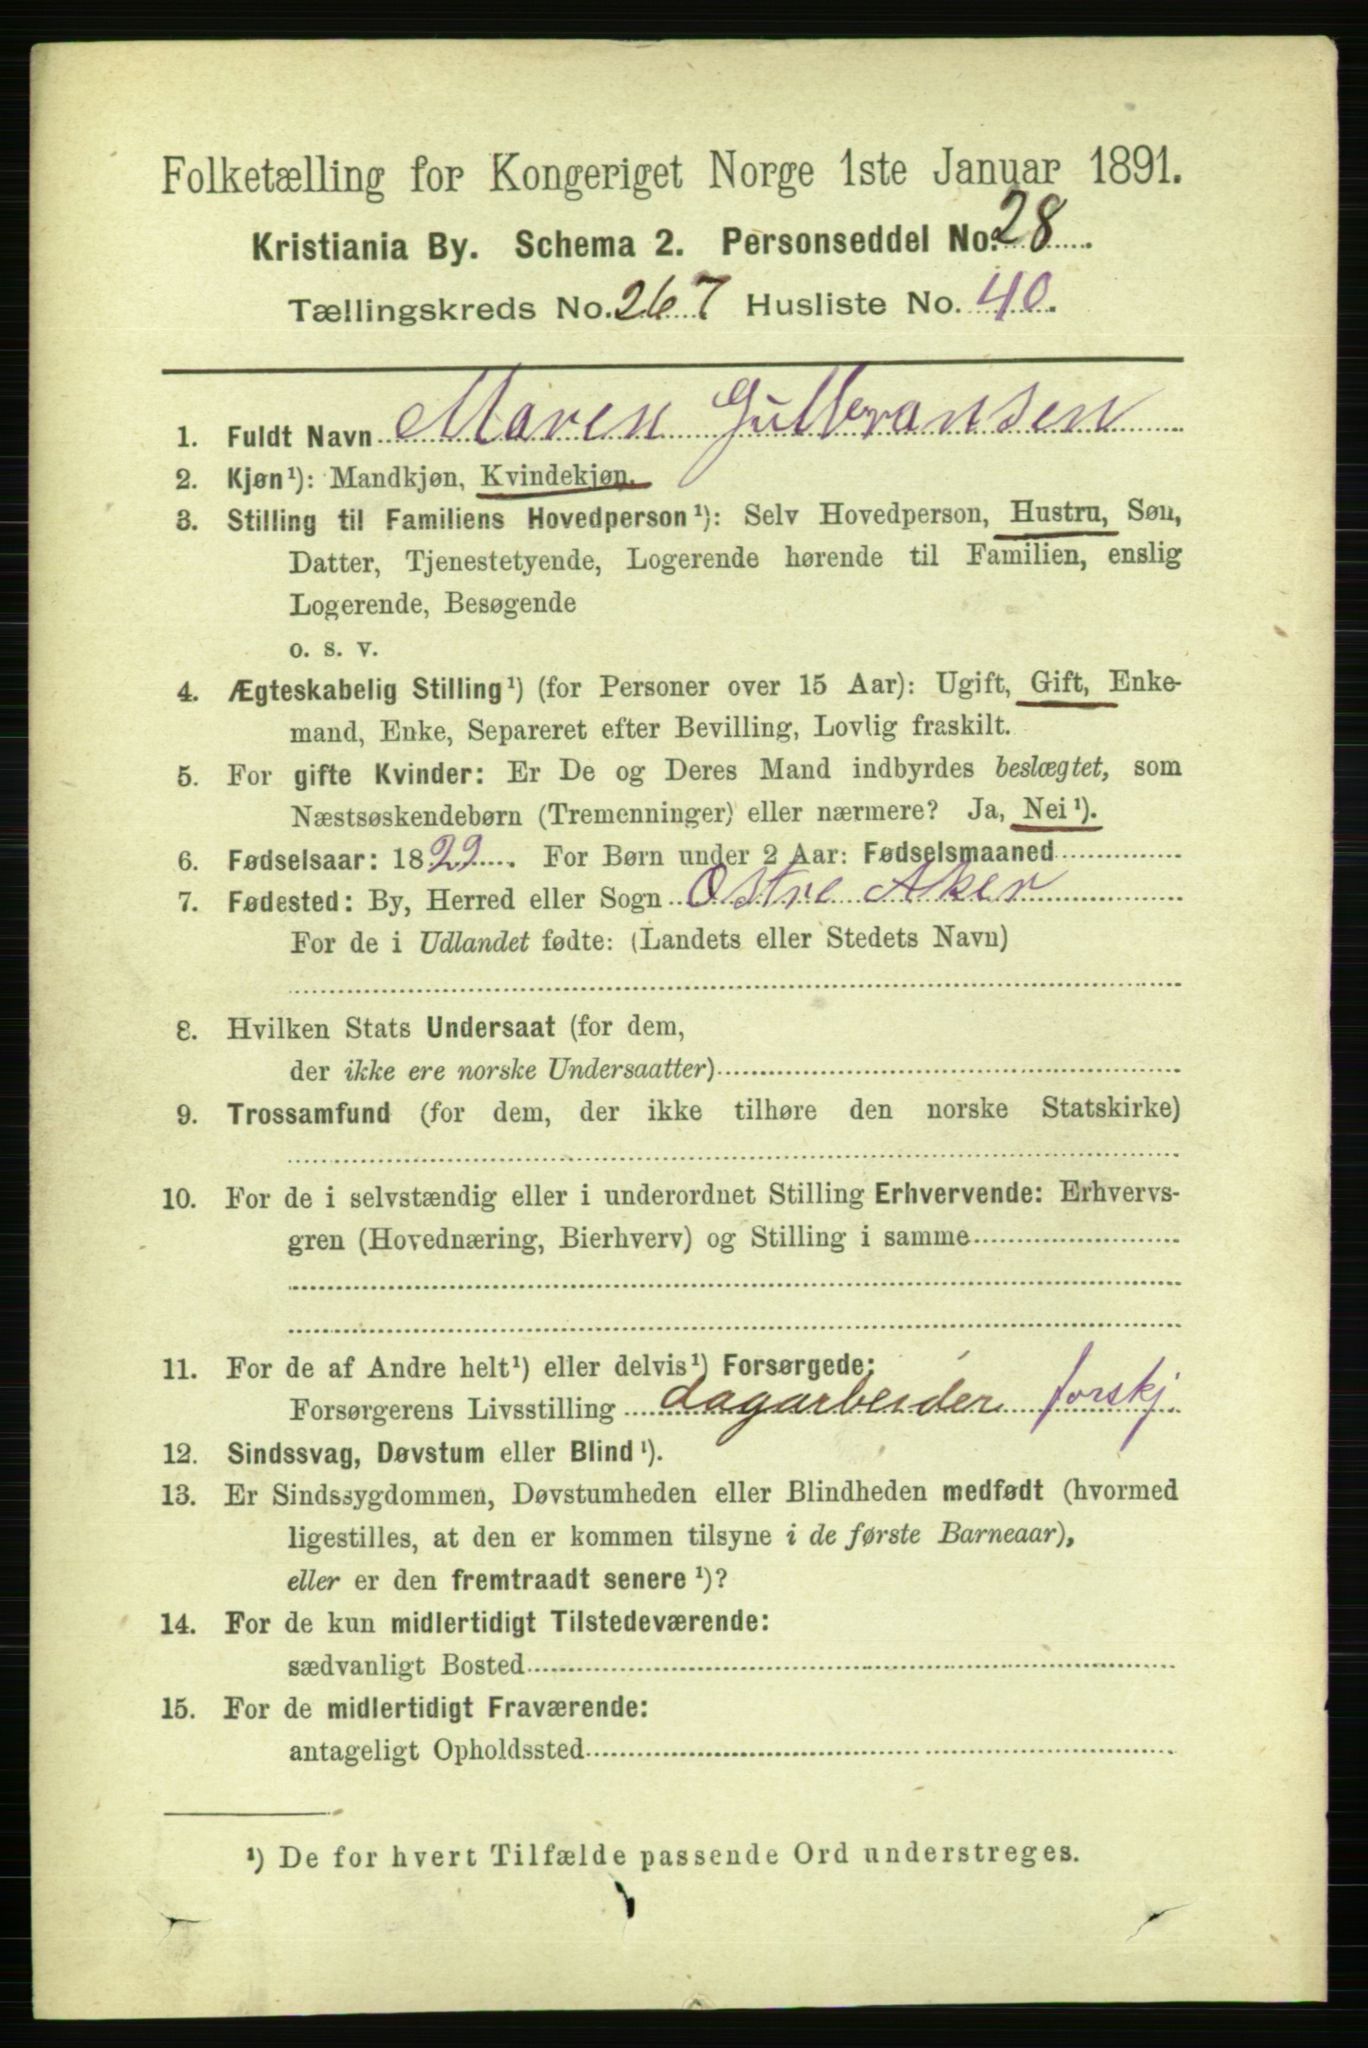 Folketælling for Kongeriget Norge 1ste Januar 1891.
Kristiania By. Schema 2. Personseddel No. 28.
Tællingskreds No. 267 Husliste No. 40.
1. Fuldt Navn Maren Gulbransen
2. Kjøn¹): Mandkjøn, Kvindekjøn.
3. Stilling til Familiens Hovedperson¹): Selv Hovedperson, Hustru, Søn,
Datter, Tjenestetyende, Logerende hørende til Familien, enslig
Logerende, Besøgende
o. s. v.
4. Ægteskabelig Stilling¹) (for Personer over 15 Aar): Ugift, Gift, Enke-
mand, Enke, Separeret efter Bevilling, Lovlig fraskilt.
5. For gifte Kvinder: Er De og Deres Mand indbyrdes beslægtet, som
Næstsøskendebørn (Tremenninger) eller nærmere? Ja, Nei¹).
6. Fødselsaar: 1822. For Børn under 2 Aar: Fødselsmaaned
7. Fødested: By, Herred eller Sogn Østre Aker
For de i Udlandet fødte: (Landets eller Stedets Navn)
8. Hvilken Stats Undersaat (for dem,
der ikke ere norske Undersaatter)
9. Trossamfund (for dem, der ikke tilhøre den norske Statskirke)
10. For de i selvstændig eller i underordnet Stilling Erhvervende: Erhvervs-
gren (Hovednæring, Bierhverv) og Stilling i samme
11. For de af Andre helt¹) eller delvis¹) Forsørgede:
Forsørgerens Livsstilling dagarbeider forskj.
12. Sindssvag, Døvstum eller Blind¹).
13. Er Sindssygdommen, Døvstumheden eller Blindheden medfødt (hvormed
ligestilles, at den er kommen tilsyne i de første Barneaar),
eller er den fremtraadt senere¹)?
14. For de kun midlertidigt Tilstedeværende:
sædvanligt Bosted
15. For de midlertidigt Fraværende:
antageligt Opholdssted
¹) De for hvert Tilfælde passende Ord understreges.